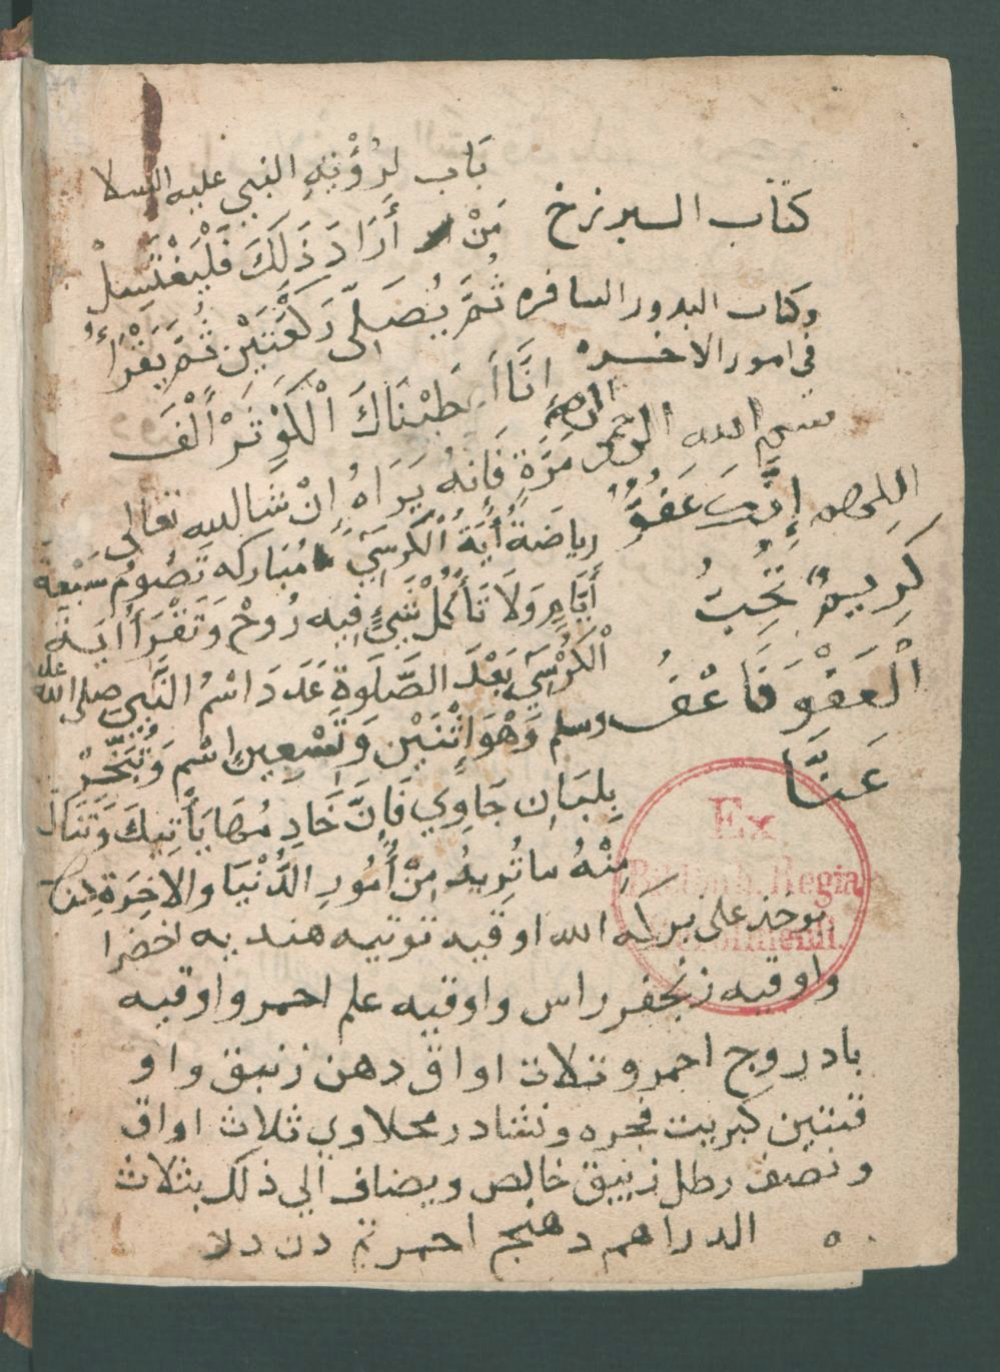 كتاب البرزخ
وكتاب البدور السافره
في امور الاخره
بسم الله الرحمن الرحيم
اللهم إنك عفوٌّ
كريمٌ تحِبُ
الْعفْوَ فَاعْفُ
عَنَّا
بَاب لرُؤْيَةِ النبي عليه السلا
مَنْ أَرَادَ ذَلَكَ فَلْيَغْتَسِلْ
ثُمَّ يُصَلِّي رَكْعَتَيْنِ ثُمَّ يَقْرَأُ
إنَّا أعْطَيْنَاكَ الْكَوْثَرْ أَلْفَ
مَرَّةٍ فَإنهُ يَرَاهُ إنْ شَا الله تعالى
رياضَةُ أيَةُ الْكُرسَيْ مُبَاركه تَصُومُ سَبْعَة
أَيَّامٍ وَلَا تَأكُلْ شَيءٍ فِيه رُوحْ وَتَقْرَأُ ايَةَ
الْكُرْسَيْ بَعْدَ الصَّلَوةِ عَدَدَ اسْمُ النَّبِي صلى الله عليه
وسلم وَهْوَ اثْنَيْن وَتَسْعِينِ اسْم وَتُبَخِّرْ
بِلبَانِ جَاوِي فَإنَّ خَادِمُهَا يَأْتِيكَ وَتَنَال
مِنْهُ ما تُرِيدُ مِنْ أُمُورِ الدُّنْيَا والاخِرَةِ
يوخذ على بركه الله اوقيه توتيه هنديه اخضرا
واوقيه زنجفر راس واوقيه علم احمر واوقيه
بادروج احمر وثلاث اواق دهن زنبق واو
قيتين كبريت فجره ونشادر محلاوي ثلاث اواق
ونصف رطل زيبق خالص ويضاف الي ذلك بثلاث
الدراهم دهنج احمر
Ex
Biblioth. Regia
Berolinenli.